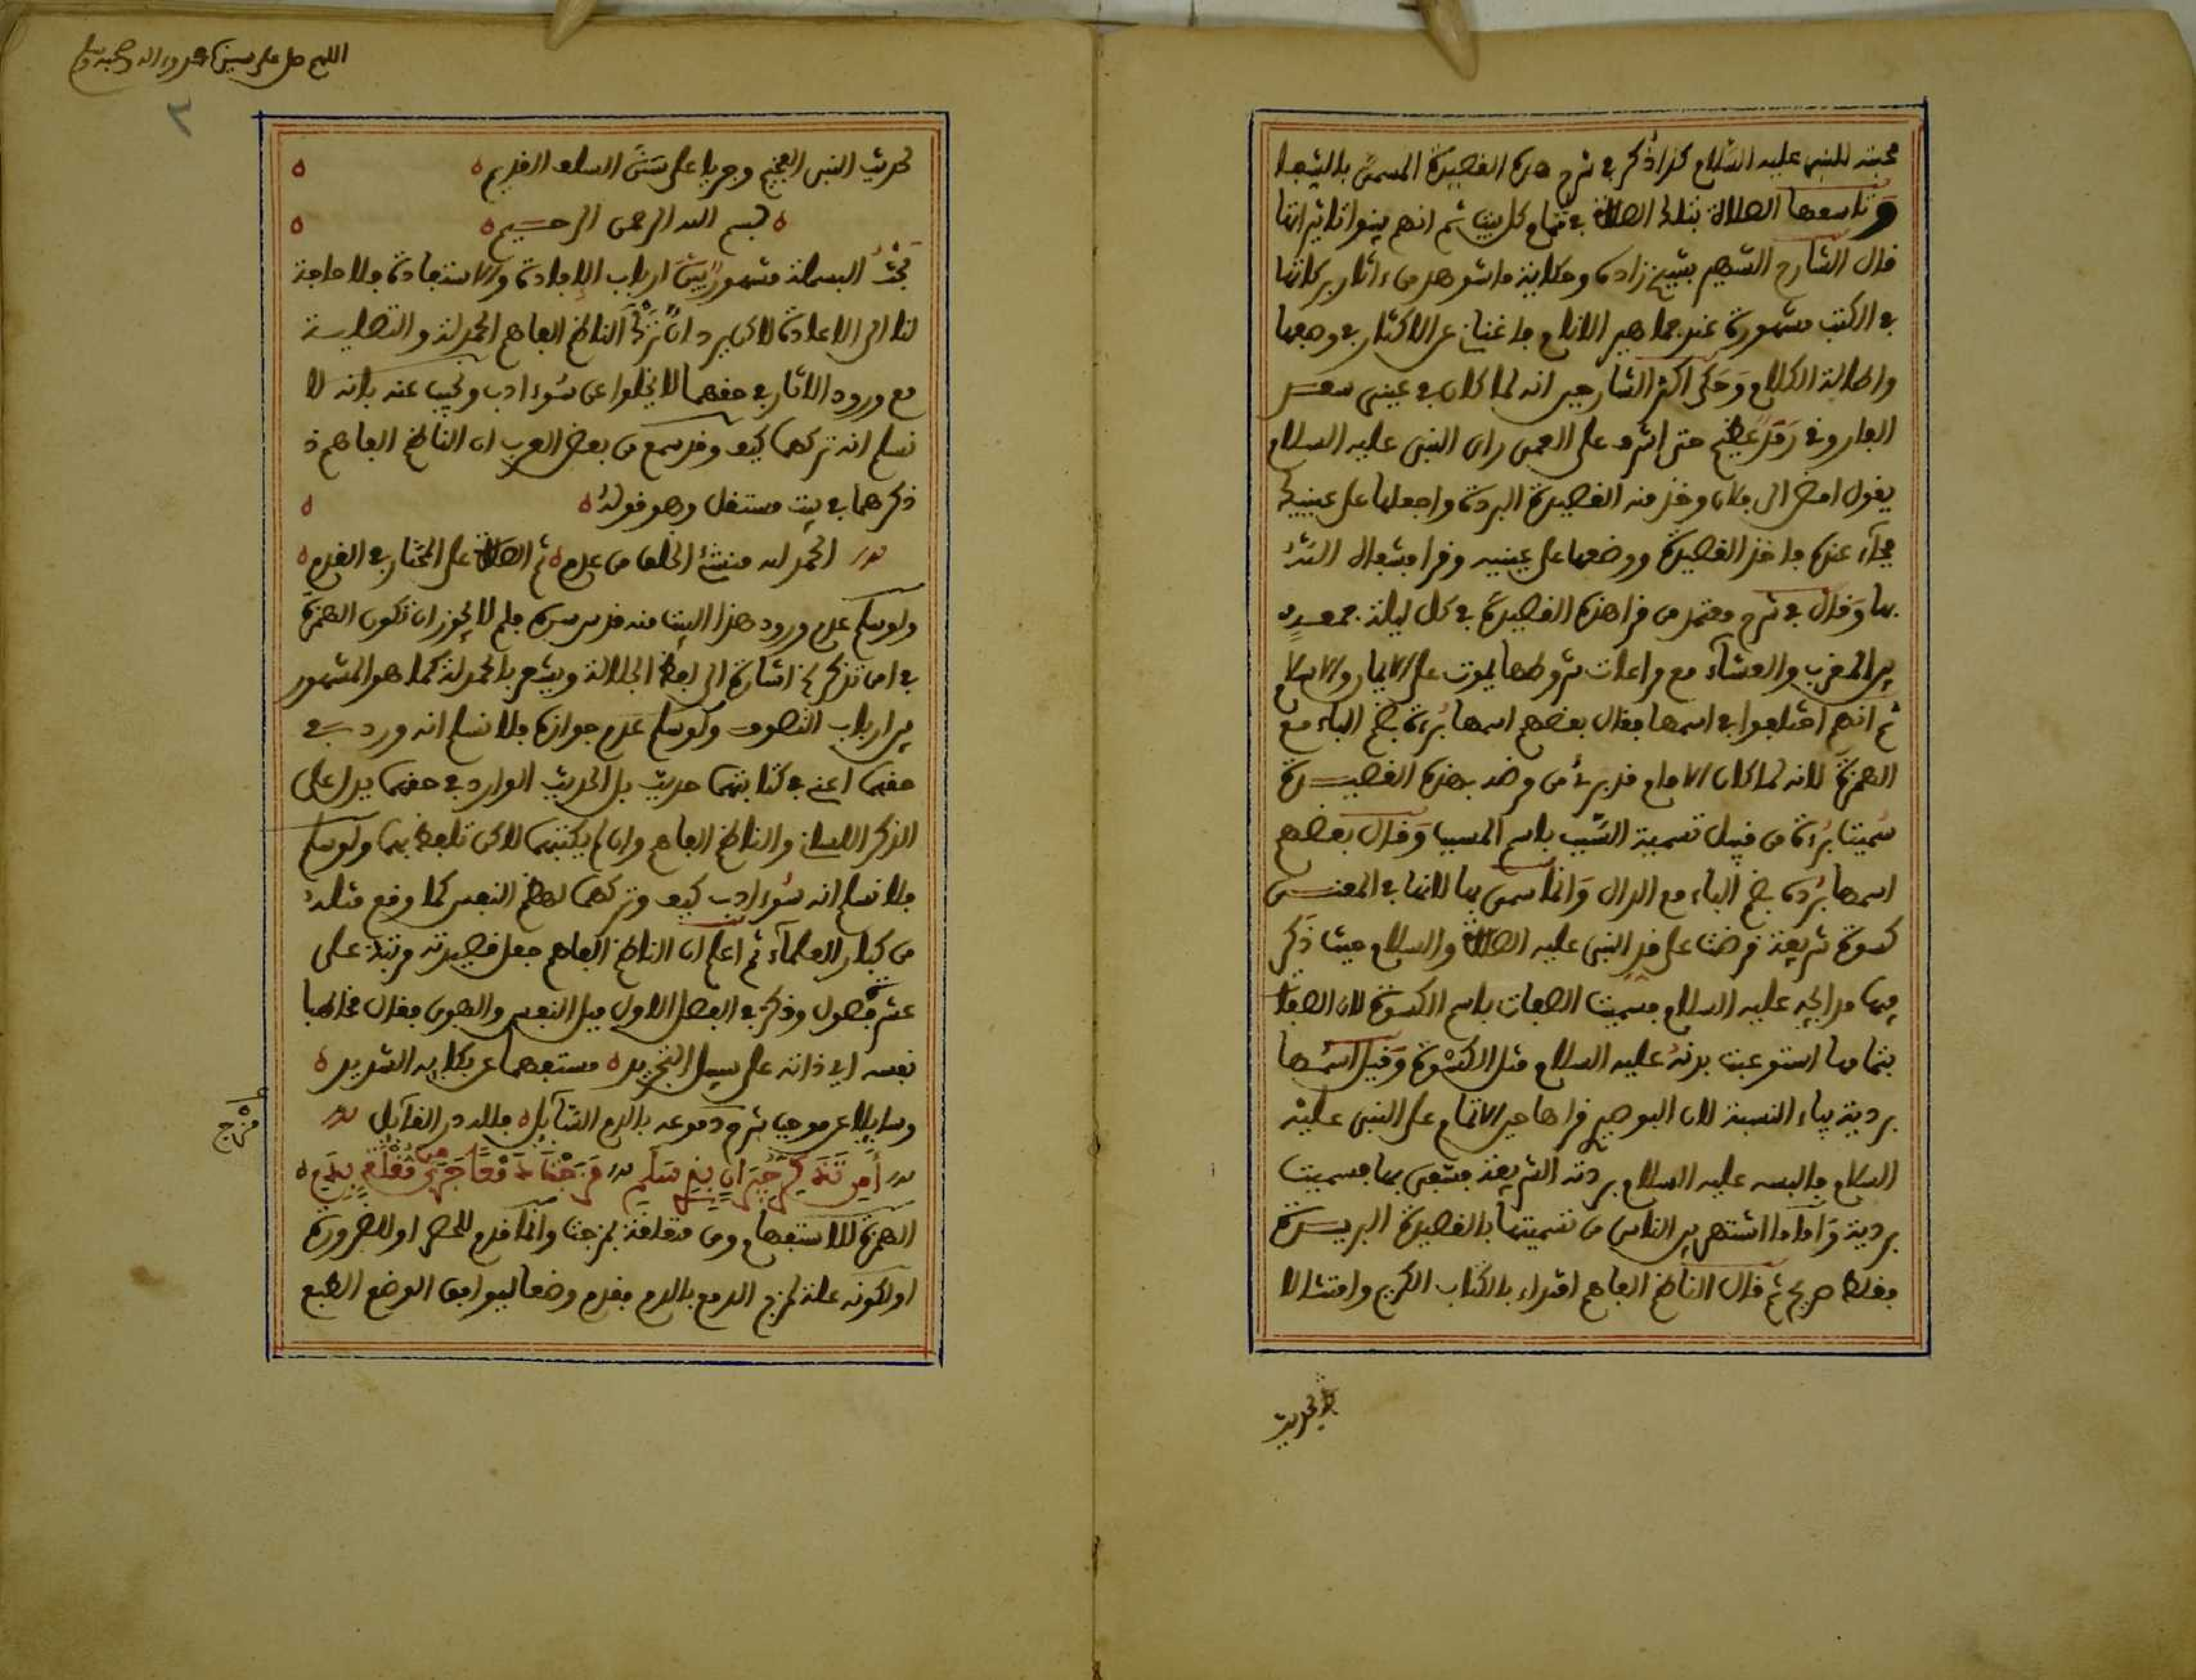 محبته للنبى عليه السلام كذا ذكر فى شرح هذه القصيدة المسمى بالشفا
وتاسعها الصلاة بتلك الصلاة فى ختام كل بيت ثم انهم بينوا تاثيراتها
قال الشارح الشهير بشيخ زاده وحكاية ما شوهد من ءاثار بركاتها
فى الكتب مشهورة عند جماهير الانام فاغنانى عن الاكثار فى وصفها
واطالة الكلام وحكى اكثر الشارحين انه لما كان فى عينى سعد
الفاروقى رمد عظيم حتى اشرف على العمى راى النبى عليه السلام
يقول امض الى فلان وخذ منه القصيدة البردة واجعلها على عينيك
فجآء عنده فاخذ القصيدة ووضعها على عينيه وقرا فشفاه الله
بها وقال فى شرح معتمد من قرا هذه القصيدة فى كل ليلة جمعة
بين المغرب والعشآء مع مراعات شروطها يموت على الايمان والاسلام
ثم انهم اختلفوا فى اسمها فقال بعضهم اسمها برءة بضم الباء مع
الهمزة لانه لما كان الامام قد برئ من مرضه بهذه القصيدة
سميت برءة من قبيل تسمية السبب باسم المسبب وقال بعضهم
اسمها بردة بضم الباء مع الدال وانما سمى بها لانها فى المعنى
كسوة شريفة فرضت على قد النبى عليه الصلاة والسلام حيث ذكر
فيها مدايحه عليه السلام فسميت الصفات باسم الكسوة لان الصفات
بتمامها استوعبت بدنه عليه السلام مثل الكسوة وقيل اسمها
بردية بياء النسبة لان البوصيرى قراها حين الاتمام على النبى عليه
السلام فالبسه عليه السلام بردته الشريفة فشفى بها فسميت
بردية واما ما اشتهر بين الناس من تسميتها بالقصيدة البريدة
فغلط صريح ثم قال الناظم الفاهم اقتداء بالكتاب الكريم وامتثالا
لحديث
اللهم صل على سيدنا محمد وءاله وصحبه وسلم
٢
لحديث النبى الفخيم وجريا على سنن السلف القديم
بسم الله الرحمن الرحيم
بحث البسملة مشهور بين ارباب الافادة والاستفادة فلا حاجة
لنا الى الاعادة لاكن يرد ان ترك الناظم الفاهم الحمدلة والتصلية
مع ورود الاثار فى حقهما لا يخلوا عن سوء ادب ونجيب عنه بانه لا
نسلم انه تركهما كيف وقد سمع من بعض العرب ان الناظم الفاهم ذ
ذكرهما فى بيت مستقل وهو قوله
الحمد لله منشئ الخلق من عدم ثم الصلاة على المختار فى القدم
ولو سلم عدم ورود هذا البيت منه قدس سره فلم لا يجوز ان تكون الهمزة
فى امن تذكر اشارة الى لفظ الجلالة ويشعر بالحمدلة كما هو المشهور
بين ارباب التصوف ولو سلم عدم جوازه فلا نسلم انه ورد فى
حقهما اعنى فى كتابتهما حديث بل الحديث الوارد فى حقهما يدل على
الذكر اللسانى والناظم الفاهم وان لم يكتبهما لاكن تلفظ بهما ولو سلم
فلا نسلم انه سوء ادب كيف وتركهما لهضم النفس كما وقع مثله
من كبار العلمآء ثم اعلم ان الناظم الفاهم جعل قصيدته مرتبة على
عشر فصول وذكر فى الفصل الاول ميل النفس والهوى فقال مخاطبا
نفسه اى ذاته على سبيل التجريد مستفهما عن بكايه الشديد
وسايلا عن موجب شرح دموعه بالدم السآيل فلله در القآيل
أمن تذكر جيران بذى سلم مزجت دمعا جرى من مقلة بدم
الهمزة للاستفهام ومن متعلقة بمزجت وانما قدم للحصر او للضرورة
او لكونه علة لمزج الدمع بالدم فقدم وضعا ليوافق الوضع الطبع
مزج